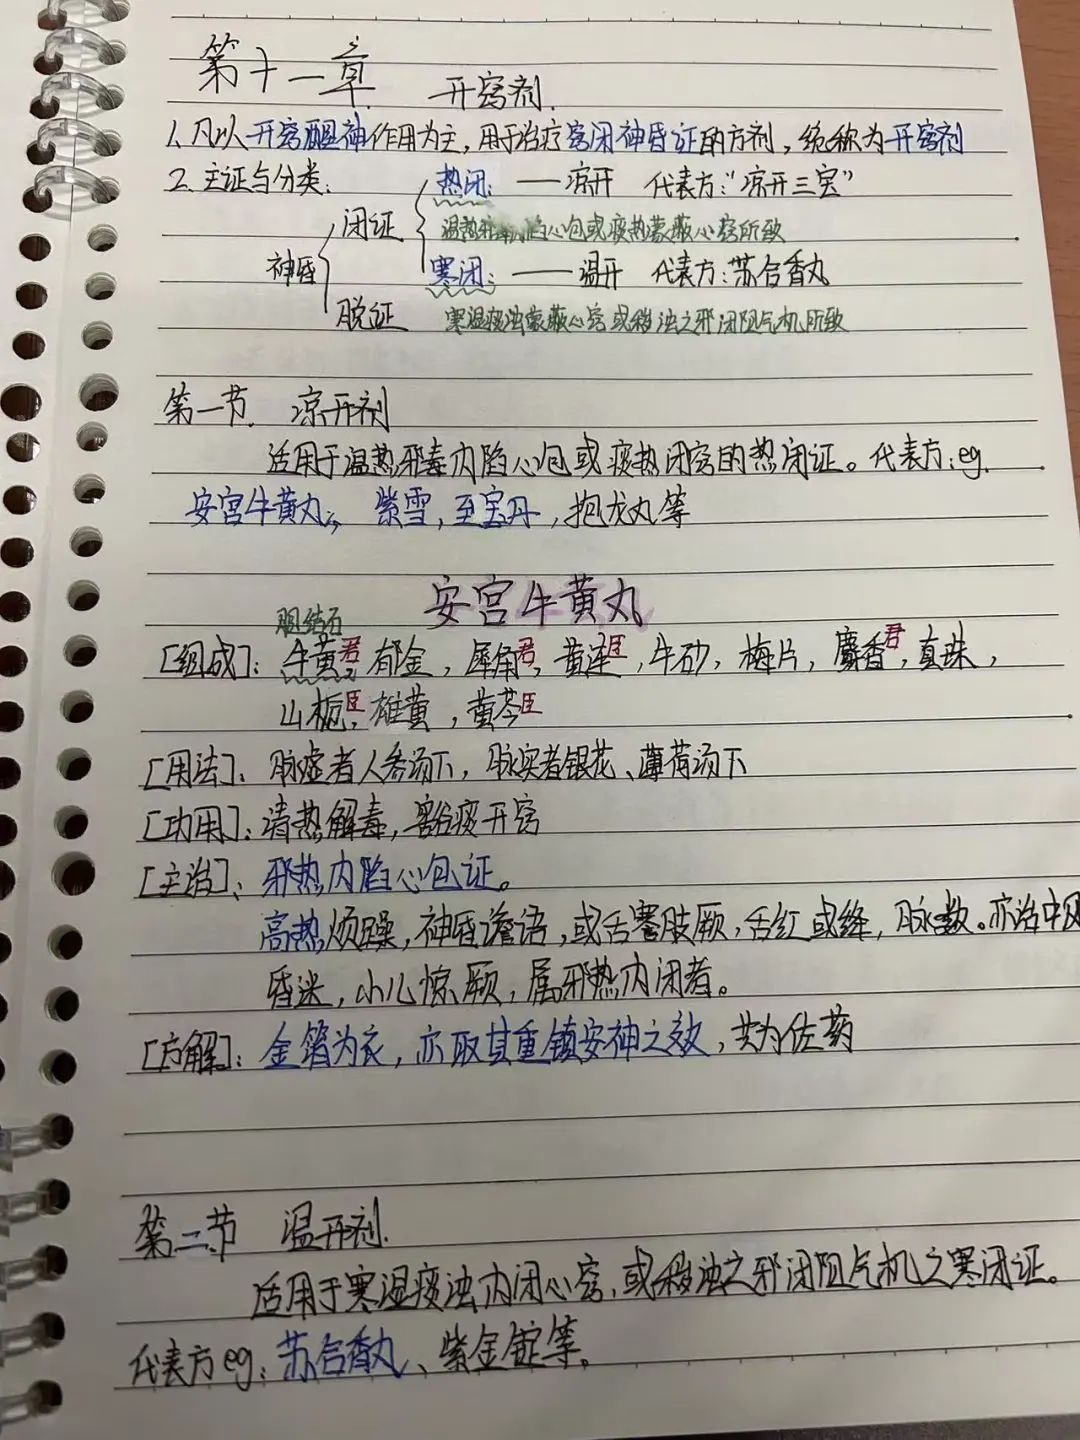 第十一章 开窍剂.
1、凡以开窍醒神作用为主，用于治疗窍闭神昏证的方剂，统称为开窍剂
2、主证与分类：
热闭：——凉开 代表方："凉开三宝"
闭证 温热邪毒内陷心包或痰热蒙蔽心窍所致
神昏 寒闭：——温开 代表方：苏合香丸
脱证 寒湿痰浊蒙蔽心窍或秽浊之邪闭阻气机所致
第一节. 凉开剂
适用于温热邪毒内陷心包或痰热闭窍的热闭证。代表方：eg.
安宫牛黄丸, 紫雪，至宝丹，抱龙丸等
安宫牛黄丸
胆结石
[组成]：牛黄君，郁金，犀角君，黄连臣，牛砂，梅片，麝香君，真珠，
山栀臣，雄黄，黄芩臣
[用法]：脉虚者人参汤下，脉实者银花、薄荷汤下
[功用]：清热解毒，豁痰开窍
[主治]：邪热内陷心包证。
高热烦躁，神昏谵语，或舌謇肢厥，舌红或绛，脉数。亦治中风
昏迷，小儿惊厥，属邪热内闭者。
[方解]：金箔为衣，亦取其重镇安神之效，共为佐药
第二节 温开剂.
适用于寒湿痰浊内闭心窍，或秽浊之邪闭阻气机之寒闭证。
代表方eg：苏合香丸、紫金锭等。